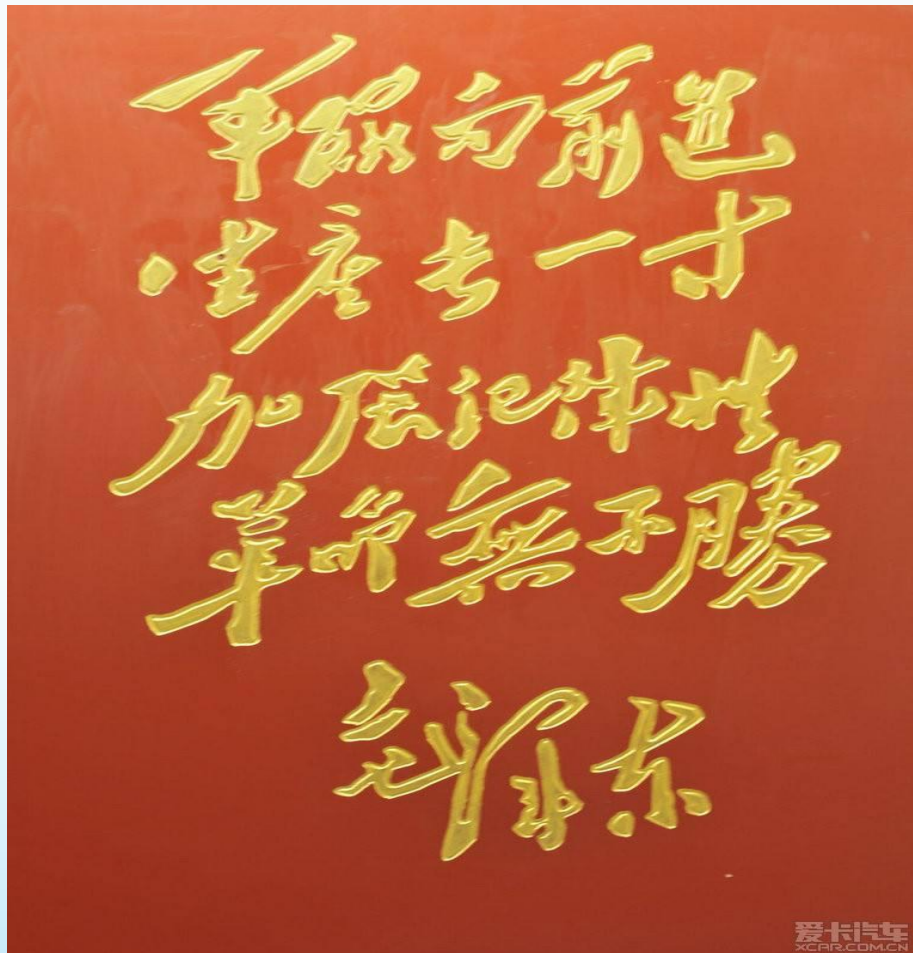 军隊向前進
生産长一寸
加强纪律性
革命無不勝
毛泽东
爱卡汽车
XCAR.COM.CN